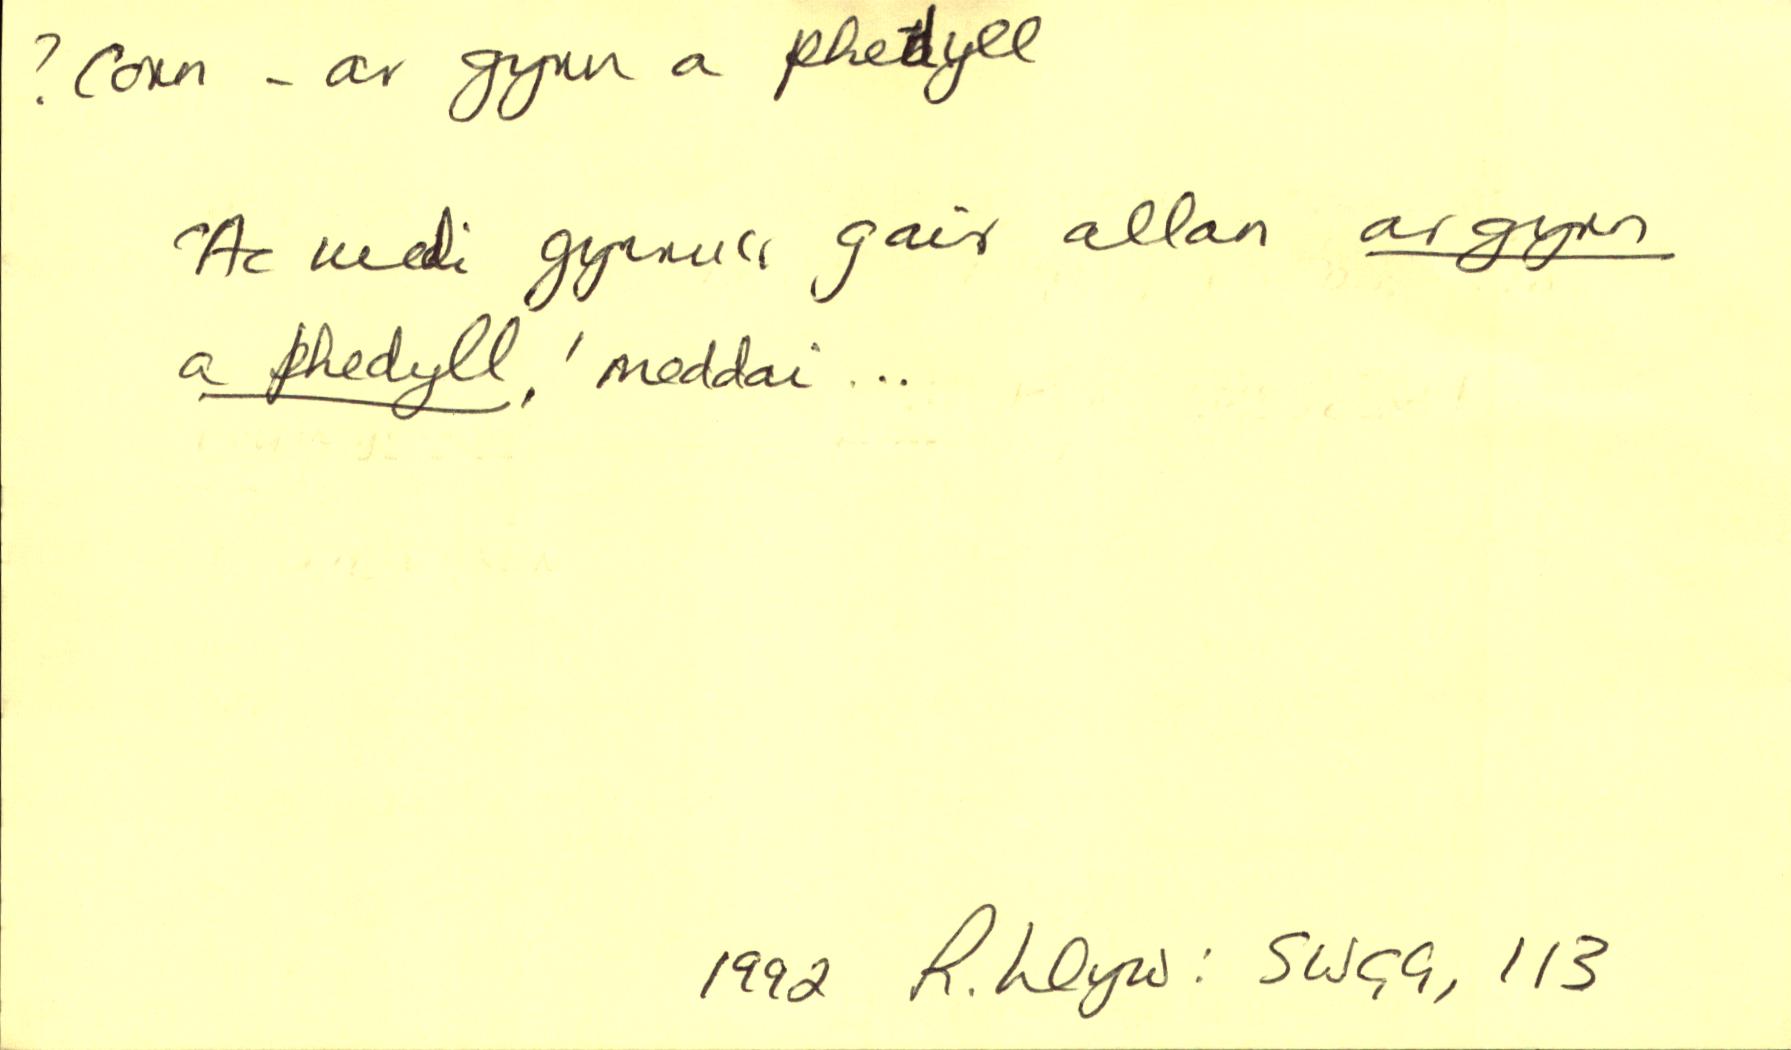 ? Corn - ar gyrn a phedyll
'Ac wedi gyrrwch gair allan ar gyrn
a phedyll,' meddai ...
1992 R. Llyw: SWGG, 113